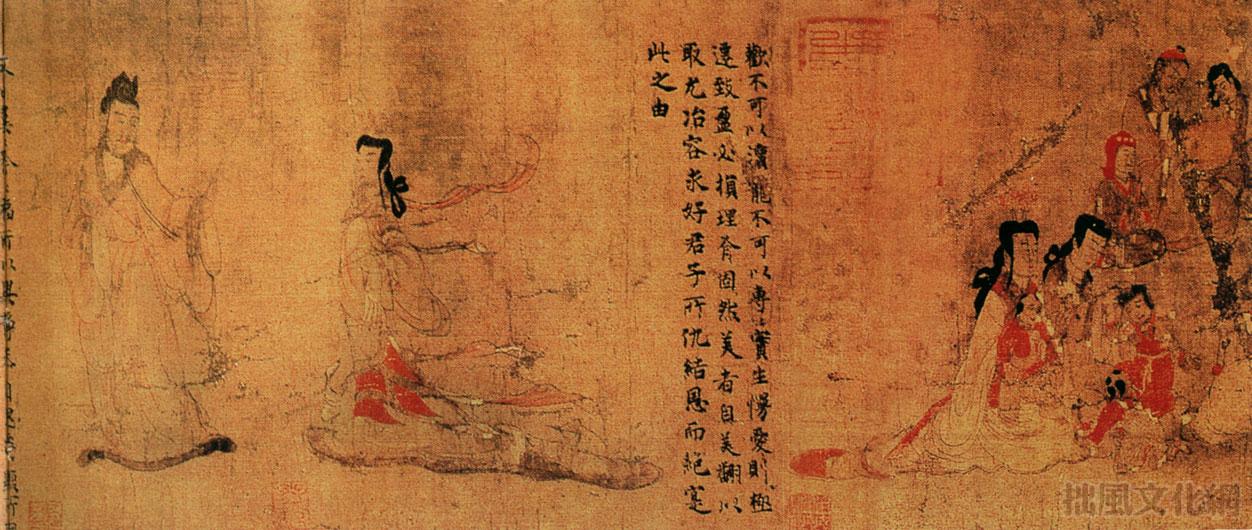 歡不可以瀆寵不可以專〻實生慢愛則極
遷致盈必損理有固然美者自美翩以
取尤冶容求好君子所仇結恩而絕寔
此之由
拙風文化網